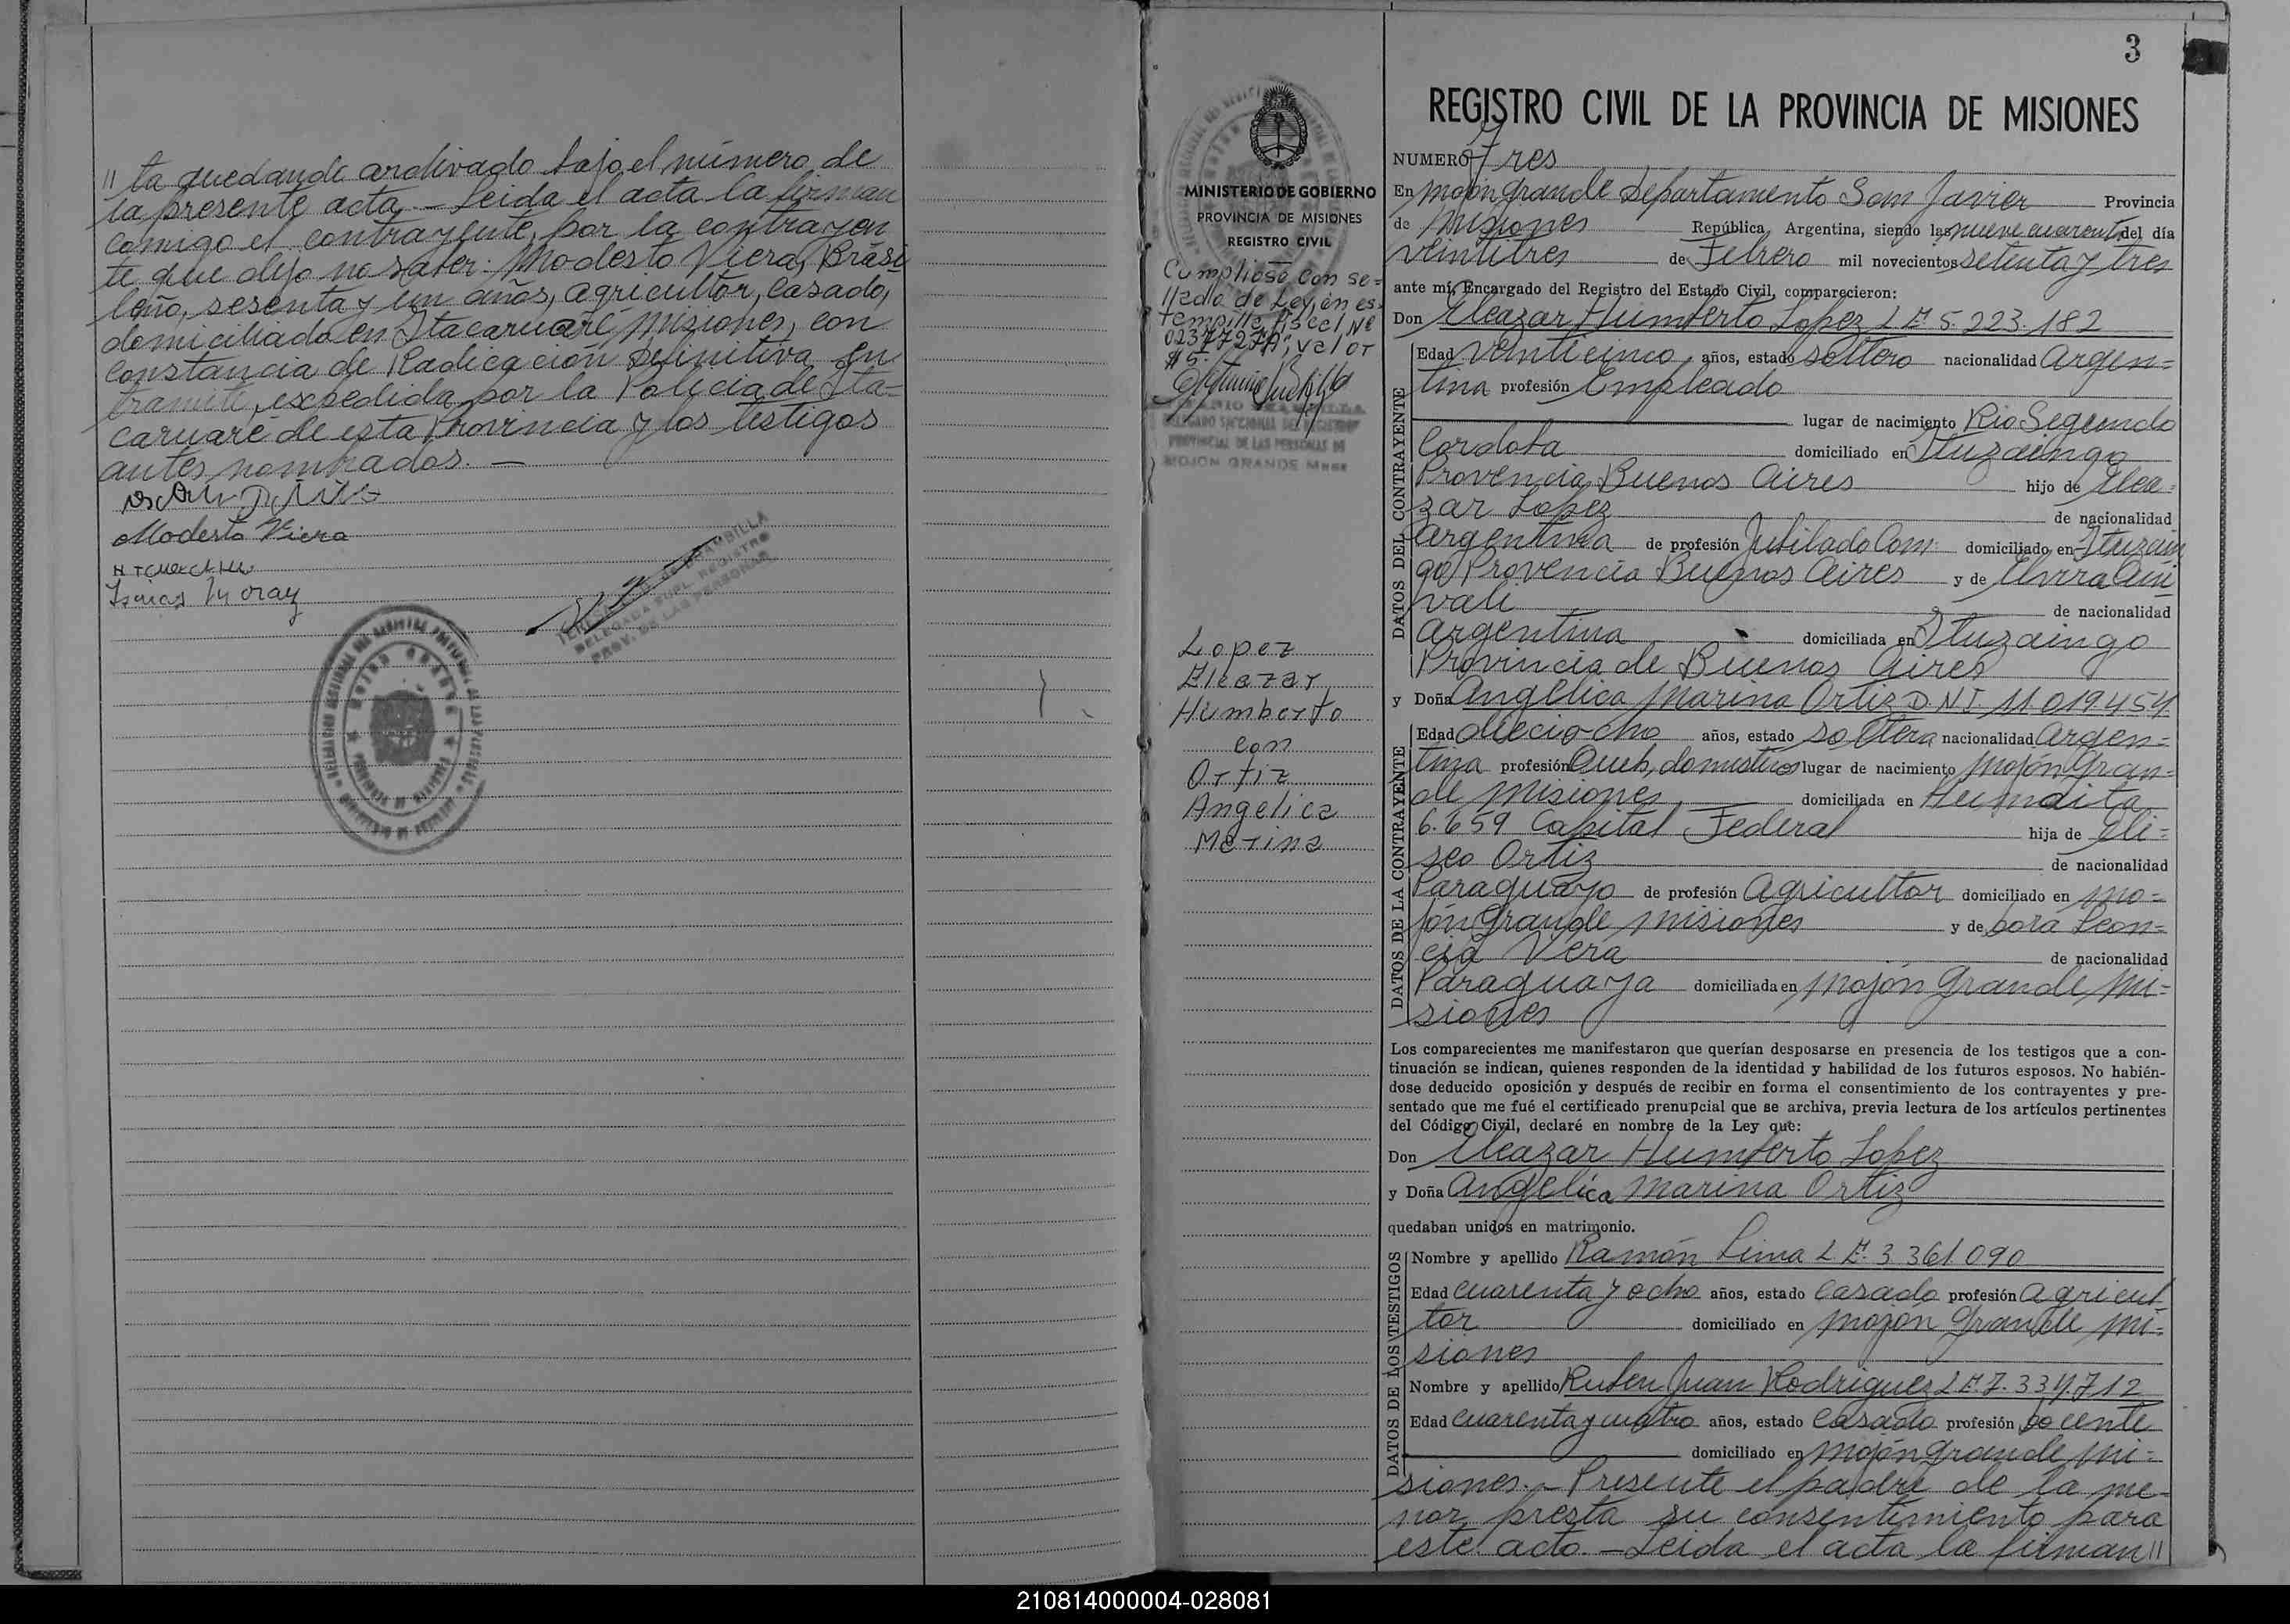 // ta quedando archivado bajo el número de
la presente acta.- Leida el acta la firman
comigo el contrayente, por la contrayen
te que dijo no saber: Modesto Viera, Brasi
leño, sesenta y un años, agricultor, casado,
domiciliado en Itacaruaré Misiones, con
constancia de Radicación definitiva en
tramite, expedida por la Policia de Ita-
caruaré de esta Provincia y los testigos
antes nombrados.-
Modesto Viera
3
REGISTRO CIVIL DE LA PROVINCIA DE MISIONES
MINISTERIO DE GOBIERNO
PROVINCIA DE MISIONES
REGISTRO CIVIL
Cumpliose con se=
llado de Ley en es-
tampilla fiscal Nº
valor
$5.
MOJON GRANDE
Lopez
Eleazar
Humberto
con
Ortiz
Angelica
Marina
NUMERO Tres
En Mojón Grande Departamento San Javier Provincia
de Misiones República Argentina, siendo las nueve cuarenta del día
veintitres de Febrero mil novecientos setenta y tres
ante mí, Encargado del Registro del Estado Civil, comparecieron:
Don Eleazar Humberto Lopez L E 5.223.182
DATOS DEL CONTRAYENTE
Edad veinticinco años, estado soltero nacionalidad Argen=
tina profesión Empleado
lugar de nacimiento Rio Segundo
Cordoba domiciliado en Ituzaingo
Provencia Buenos Aires hijo de Elea=
zar Lopez de nacionalidad
Argentina de profesión Jubilado Com. domiciliado en Ituzain
go Provencia Buenos Aires y de Elvira
de nacionalidad
Argentina domiciliada en Ituzaingo
Provincia de Buenos Aires
y Doña Angélica Marina Ortiz D.N.I. 11.019.454
DATOS DE LA CONTRAYENTE
Edad dieciocho años, estado soltera nacionalidad Argen=
tina profesión Queh. domesticos lugar de nacimiento Mojón Gran=
de Misiones domiciliada en Humaita
6.659 Capital Federal hija de Eli=
seo Ortiz de nacionalidad
Paraguayo de profesión Agricultor domiciliado en Mo=
jón Grande Misiones y de Dora Leon=
cia Vera de nacionalidad
Paraguaya domiciliada en Mojón Grande Mi=
siones
Los comparecientes me manifestaron que querían desposarse en presencia de los testigos que a con-
tinuación se indican, quienes responden de la identidad y habilidad de los futuros esposos. No habién-
dose deducido oposición y después de recibir en forma el consentimiento de los contrayentes y pre-
sentado que me fué el certificado prenupcial que se archiva, previa lectura de los artículos pertinentes
del Código Civil, declaré en nombre de la Ley que:
Don Eleazar Humberto Lopez
y Doña Angélica Marina Ortiz
quedaban unidos en matrimonio.
DATOS DE LOS TESTIGOS
Nombre y apellido Ramón Lima L.E. 3 361.090
Edad cuarenta y ocho años, estado casado profesión agricul
tor domiciliado en Mojón Grande Mi=
siones
Nombre y apellido Ruben Juan Rodriguez L E. 7.334.712
Edad cuarenta y cuatro años, estado casado profesión Docente
domiciliado en Mojón Grande Mi=
siones.- Presente el padre de la me-
nor presta su consentimiento para
este acto.- Leida el acta la firman //
210814000004-028081